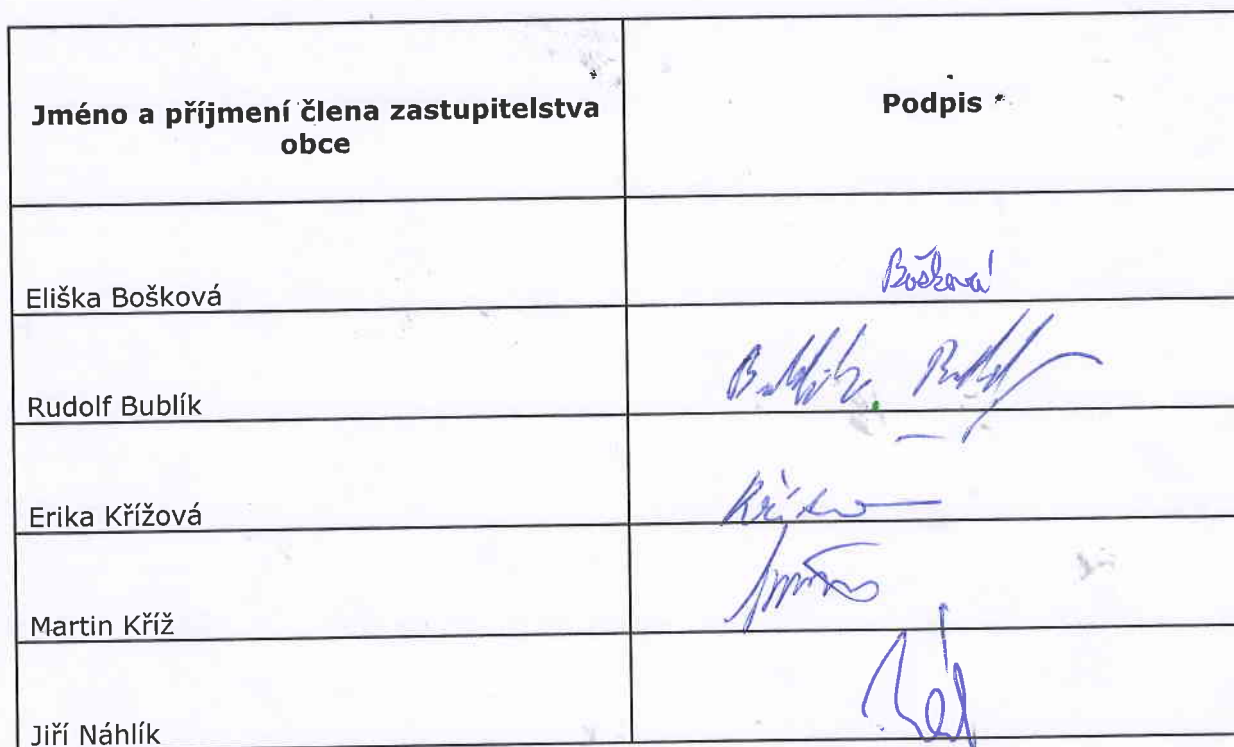 Jméno a příjmení člena zastupitelstva
obce
Podpis
Eliška Bošková
Bošková
Rudolf Bublík
Bublík Rudolf
Erika Křížová
Martin Kříž
Jiří Náhlík